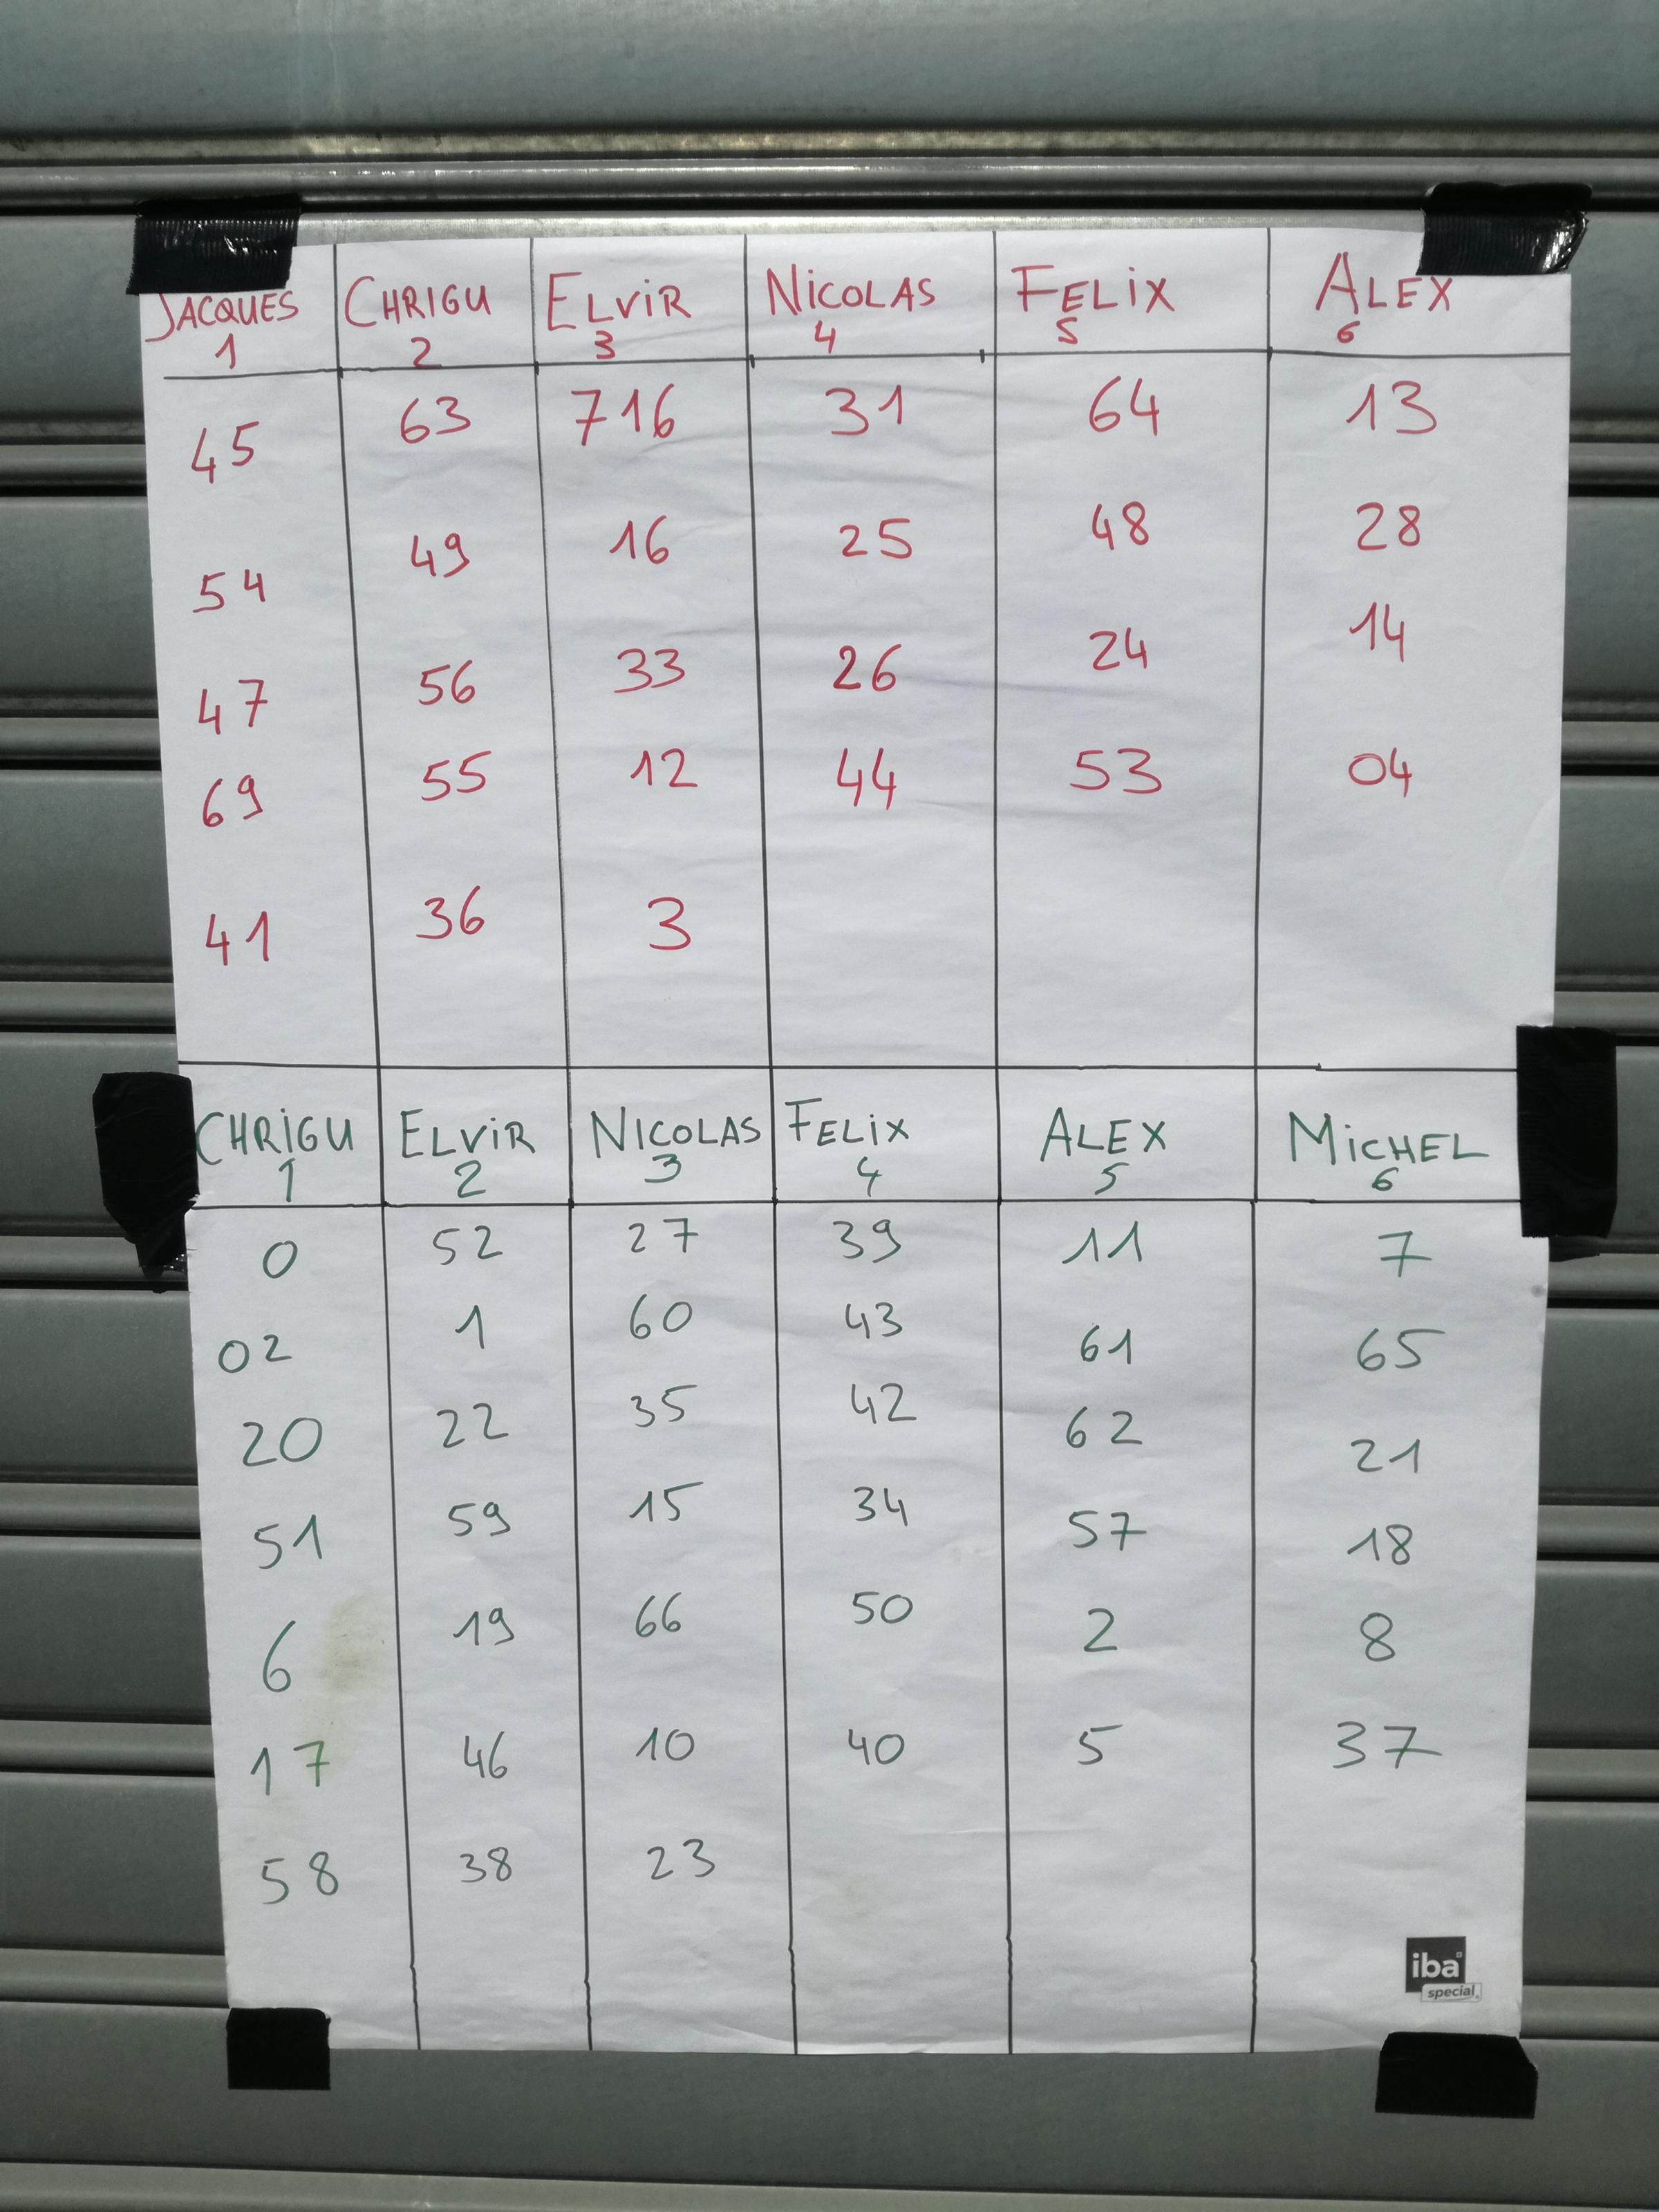 JACQUES CHRIGU ELViR NiCOLAS FELiX ALEX
1 2 3 4 5 6
45 63 716 31 64 13
54 49 16 25 48 28
47 56 33 26 24 14
69 55 12 44 53 04
41 36 3
CHRiGU ELViR NICOLAS FELiX ALEX MiCHEL
1 2 3 4 5 6
0 52 27 39 11 7
02 1 60 43 61 65
20 22 35 42 62 21
51 59 15 34 57 18
6 19 66 50 2 8
17 46 10 40 5 37
58 38 23
iba
special